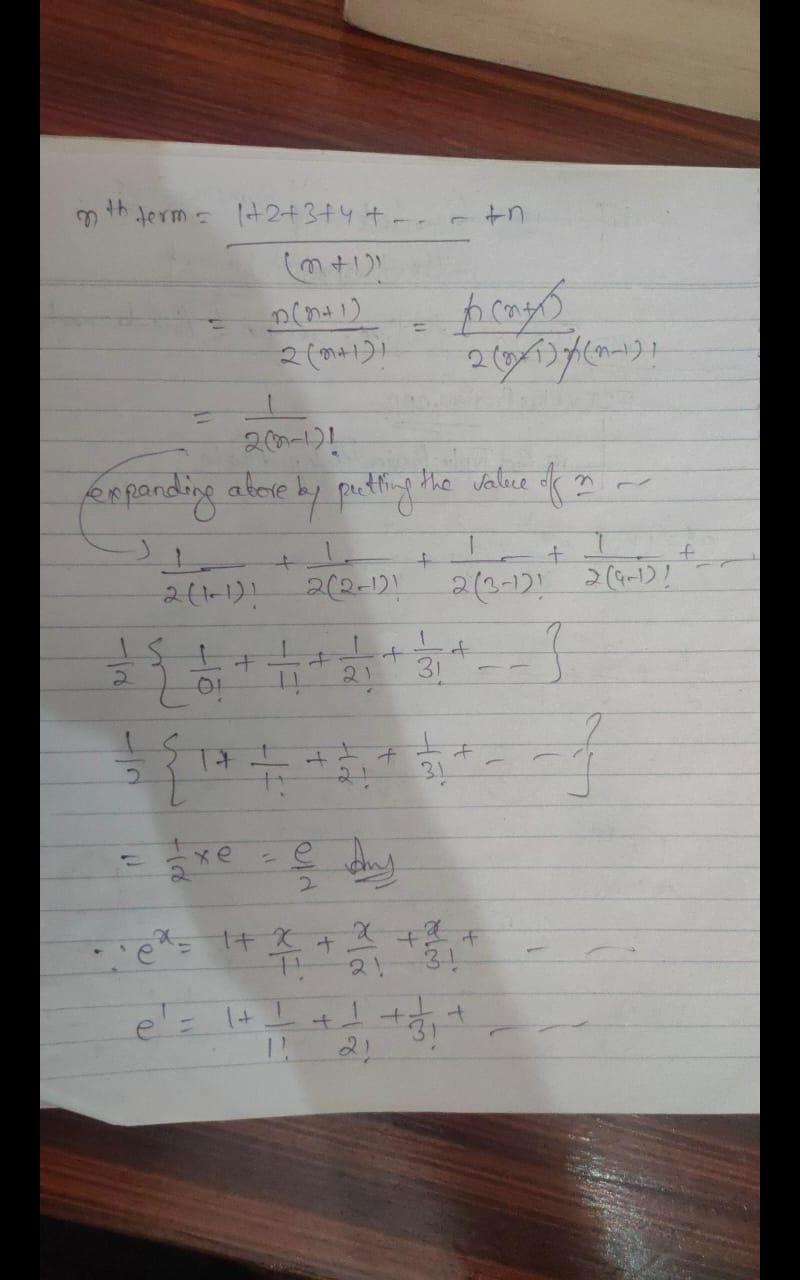 nth term = (1+2+3+4+-- -- - +n)/(n+1)!
= n(n+1)/2(n+1)! = n(n+1)/2(n+1)n(n-1)!
= 1/2(n-1)!
expanding above by putting the value of n --
1/2(1-1)! + 1/2(2-1)! + 1/2(3-1)! + 1/2(4-1)! + - --
1/2 { 1/0! + 1/1! + 1/2! + 1/3! + - - - }
1/2 { 1 + 1/1! + 1/2! + 1/3! + - - - }
= 1/2 × e = e/2 Ans
∵ e^x = 1 + x/1! + x/2! + x/3! + - --
e^1 = 1 + 1/1! + 1/2! + 1/3! + - --